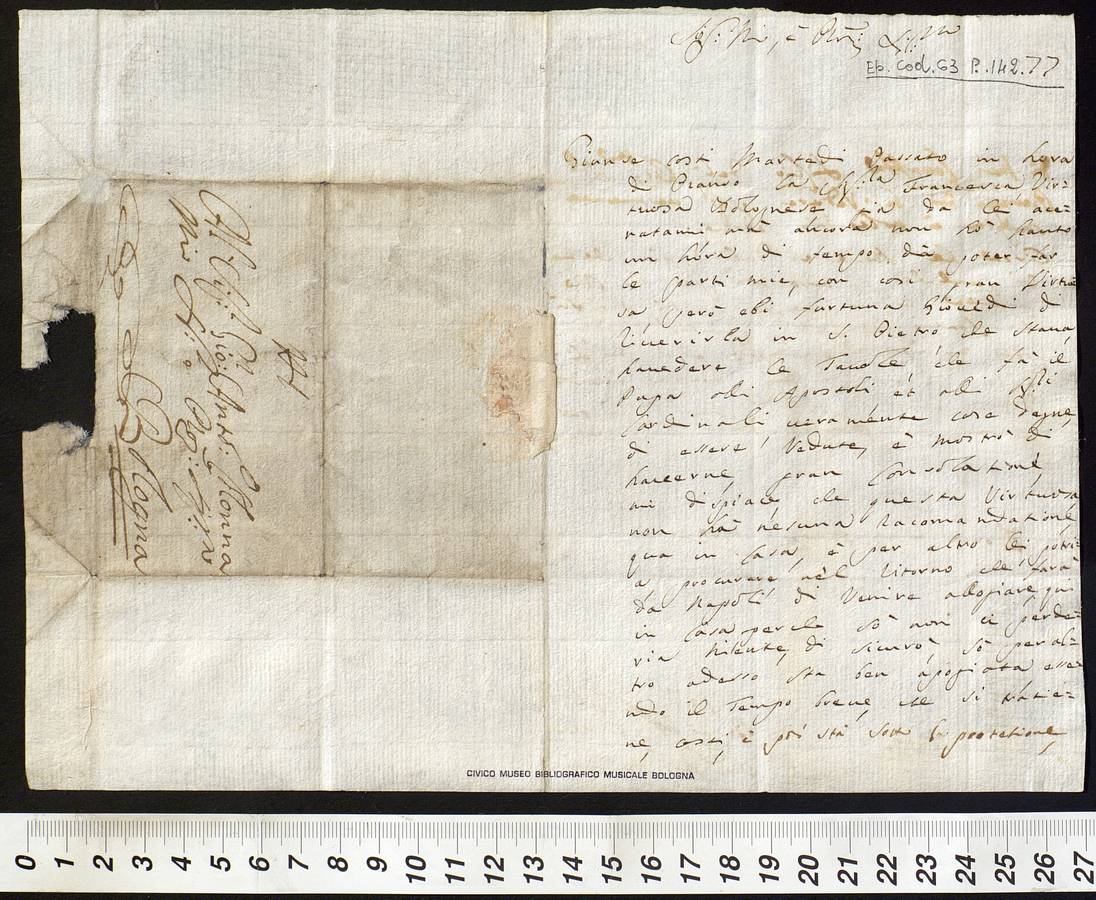 Eb. Cod. 63 P. 142. 77
Giunse costi Martedi Passato in hora
di Pranso la Francesca Vir=
tuosa Bolognese da lei ace=
natami mà ancora non hò hauto
un hora di tempo da poter far
le parti mie, con cosi gran Virtuo
sa però ebi fortuna Giovedi di
riverirla in S. Pietro che staua
hauedere le Tauole, che fà il
Papa alli Apostoli, et alli
Cardinali ueramente cose degne
di essere Vedute, e mostrò di
hauerne, gran Consolatione,
mi dispiace che questa Virtuosa
non hà nesuna Racomandatione
qua in Casa, e per altro lei potri=
a procurare nel Ritorno che farà
da Napoli di Venire allogiare qui
in Casa perche sò non ci perde=
ria niente, di sicuro, sò per al=
tro adesso sta ben apogiata esse=
ndo il Tempo breue, che si tratie=
ne, costi, e poi stà sotto la protetione,
Gio: Ant:
Bologna
CIVICO MUSEO BIBLIOGRAFICO MUSICALE BOLOGNA
0 1 2 3 4 5 6 7 8 9 10 11 12 13 14 15 16 17 18 19 20 21 22 23 24 25 26 27